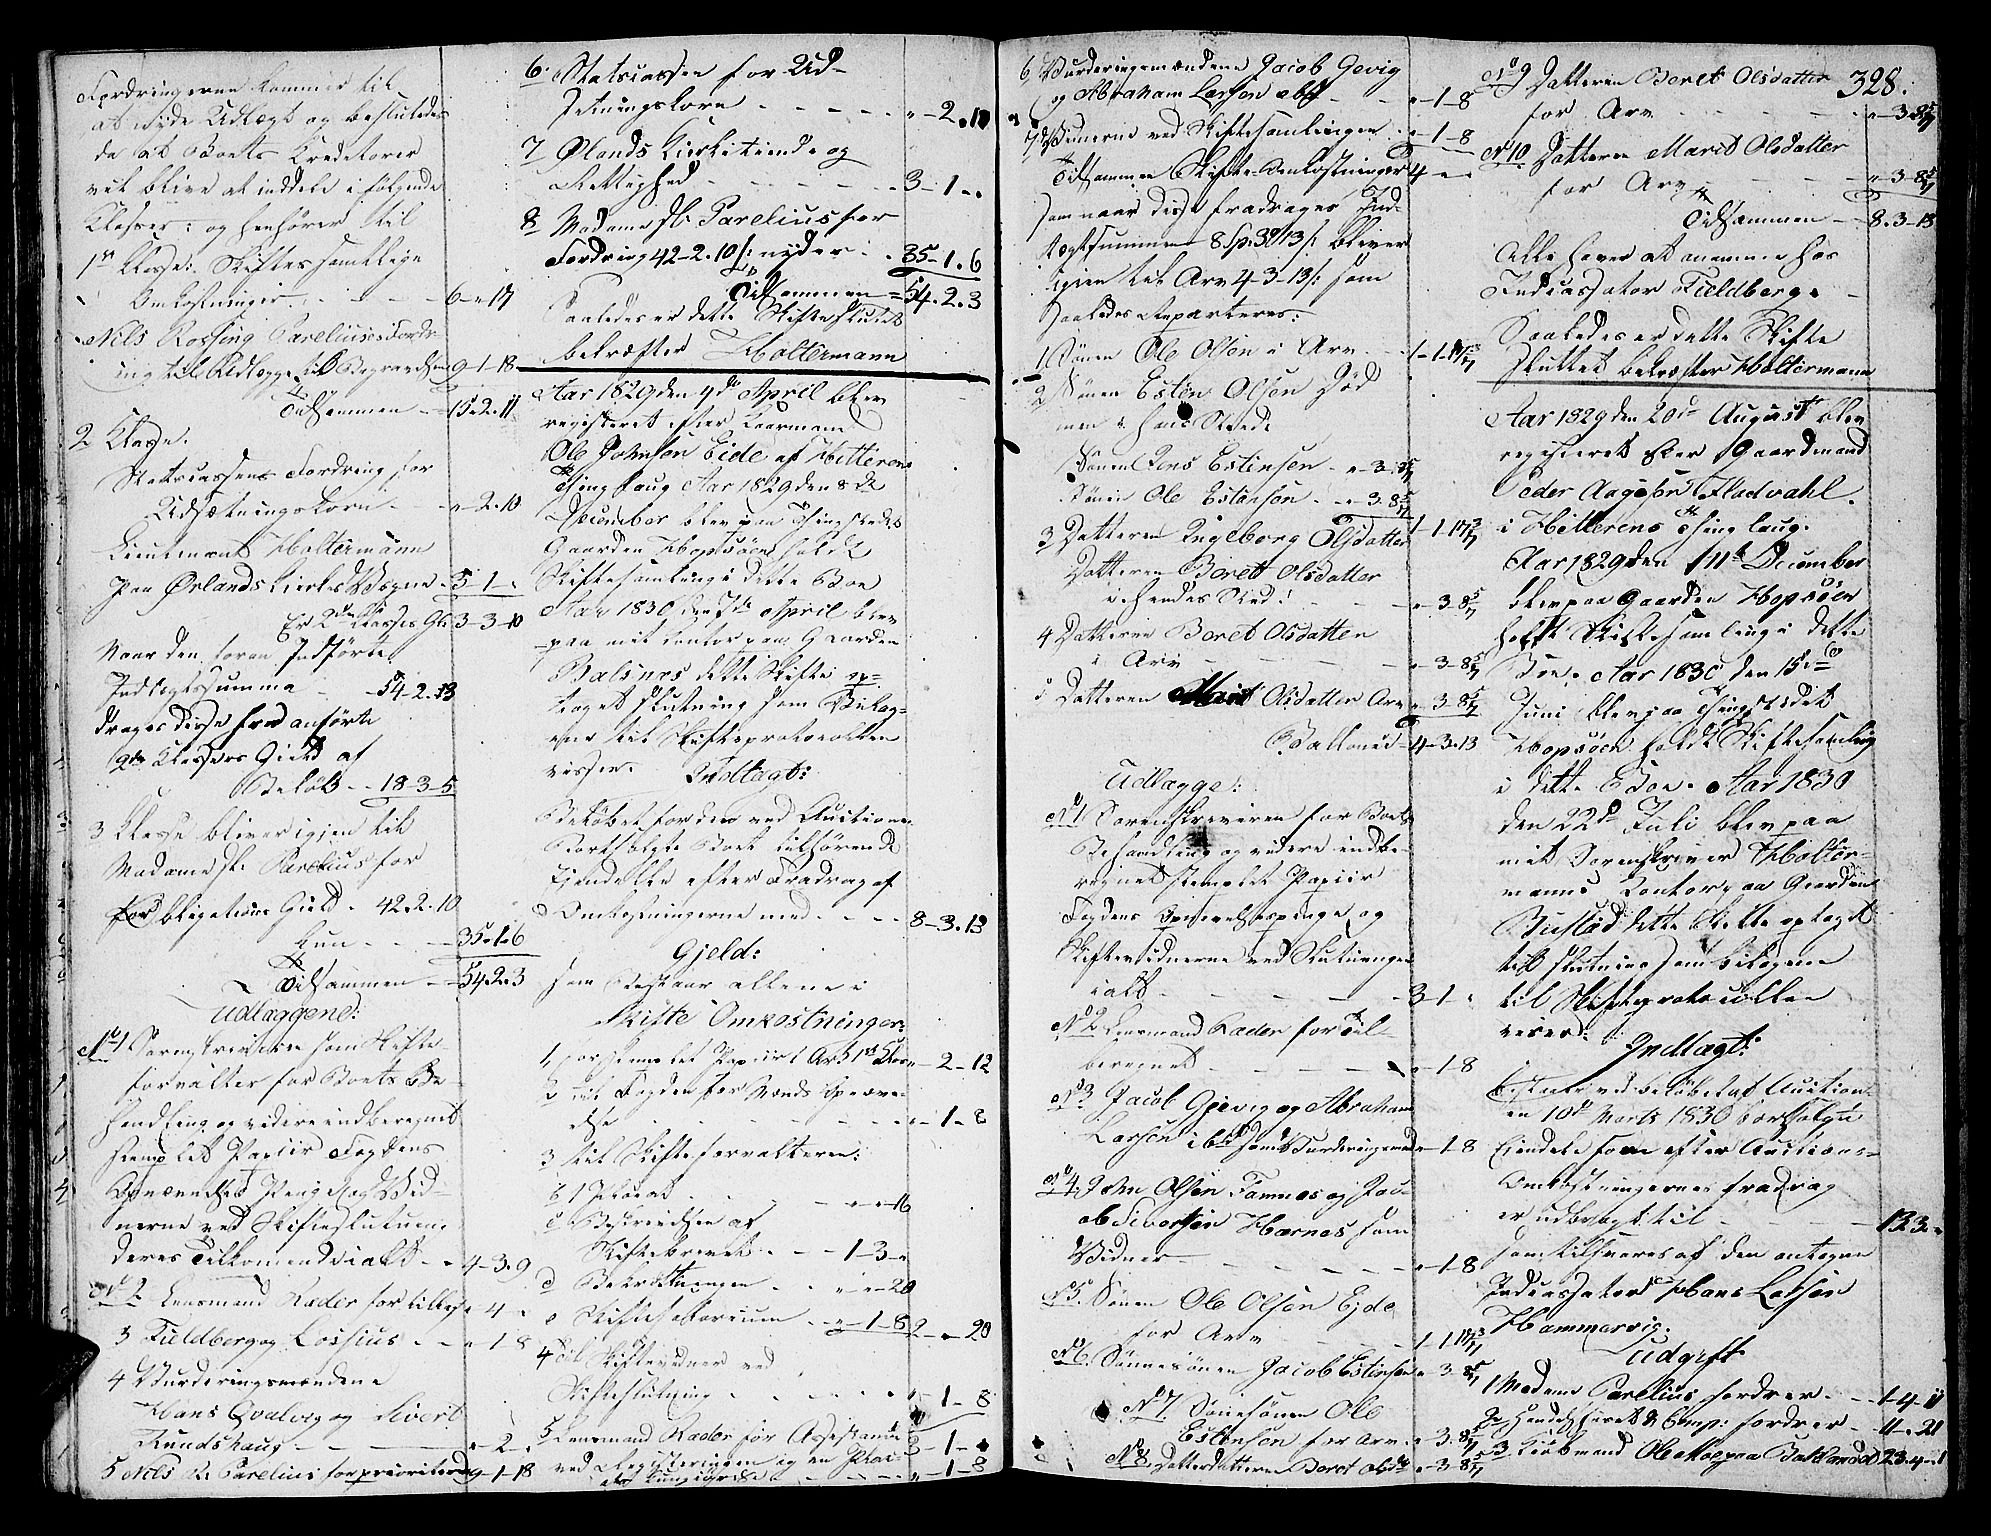 Fordringerne kommer til
at nyde Udlægt og besluttedes
da at Boets Kreditorer
vil blive at inddele i følgende
Klasser: og henhører til
1ste Klasse: Skiftes samtlige
Omkostninger - - - 6 - " 17
Nils Rossing Parelius's Fordr-
ing til Begravelse 9-1-18
Tilsammen - 15-2-11
2 Klasse.
Statscassens Fordring for
Udsætningskorn - - " 2-10
Lieutenant Holtermann
paa Ørlands Kirkes Vegne - 3-1-"
Er 2den Klasses Gl: 3-3-10
Naar den foran Indførte
Indtægtssumma - 54-2-13
drages disse her anførte
2de Klassers Gield af
Beløb - - 18-3-5
3 Klasse bliver igjen til
Madame sl: Parelius for
Obligations Gield - 42-2-10
Kun - - - 35-1-6
Tilsammen - 54-2-3
Udlæggene:
No 1 Sorenskriveren som Skifte-
forvalter for Boets Be-
handling og videre indberegnet
stemplet Papiir Fogdens
Opnævnelses Penge og Vid-
nerne ved Skifteslutning
deres Tilkomende i alt - 4-3-9
No 2 Lensmand Rader for tillagt " 4 "
3 Fieldberg og Lossius - - " 1-8
4 Vurderingsmændene
Hans Qvalvig og Sivert
Rundshaug - - - " 2 "
5 Nils R. Parelius for prioriterede 9-1-18
6. Statscassen for Ud-
setningskorn - - - - " 2-10
7 Ølands Kirketiende og
Rettighed - - - - 3-1-"
8 Madame sl: Parelius for
Fordring 42-2-10 s: nyder - 35-1-6
Tilsammen = 54-2-3
Saaledes er dette Skifte sluttet
bekræfter Holtermann
Aar 1829 den 9de April blev
registeret efter Kaarmand
Ole Johnsen Eide af Hitterens
Thinglaug Aar 1829 den 8de
December blev paa Thingstedet
Gaarden Hopsøen holdt
Skiftesamling i dette Boe
Aar 1830 den 7de April blev
paa mit Contor paa Gaarden
Balsnes dette Skifte op-
taget slutning som Bilag-
ene til Skifteprotocollen
viser. Indtægt:
Beløbet for den ved Auction
Bortsolgte Boet tilhørende
Eiendele efter Fradrag af
Omkostningerne med - - - 8-3-13
Gjeld:
som Bestaar allene i
Skifte Omkostninger:
1 for stemplet Papiir 1 Ark 1ste Klasse - 2-12
2 til Fogden for Mænds Opnævn-
else - - - - - " 1-8
3 til Skifteforvalteren:
b 1 Placat - - - " " 16
c Beskrivelsen af
Skiftebrevet - - 1-3-"
d Bekræftningen - - " " 20
e Skiftesalarium - - " 1-8 2 " 20
4 til Skiftevidner ved
Skifteslutning - - - " 1-8
5 Lensmand Rader for Assistance
ved Registeringen og en Placat 3-1-"
- - - " 1-8
6 Vurderingsmændene Jacob Gevig
og Abraham Larsen - - " 1-8
7 Vidnerne ved Skiftesamlingen - " 1-8
Tilsammen Skifte-Omkostninger 4 " "
som naar disse fradrages Ind-
tægtsummen 8 Sp: 3 13 s: bliver
igien til Arv 4-3-13 s: som
saaledes Reparteres:
1 Sønen Ole Olsen i Arv - - 1-1-17 3/7
2 Sønen Esten Olsen Død
men i hans Stæde
Sønen Jens Estensen - " 3-8 5/7
Sønen Ole Estensen - " 3-8 5/7
1-1-17 3/7
3 Datteren Ingeborg Olsdatter
Datteren Beret Olsdatter
i hendes Sted! - - - " 3-8 5/7
4 Datteren Beret Olsdatter
i Arv - - - - " 3-8 5/7
5 Datteren Marit Olsdatter Arv " 3-8 5/7
Ballance - 4-3-13
Udlægge:
No 1 Sorenskriveren for Boets
Behandling og videre indbe-
regnet stemplet Papiir
Fogdens Opnævelsespenge og
Skiftevidnerne ved Slutningen
i alt - - - - - 3-1-"
No 2 Lensmand Rader for Til-
beregnet - - - - " 1-8
No 3 Jacob Gjevig og Abraham
Larsen som Vurderingsmænd " 1-8
No 4 John Olsen Famnes og Jac-
ob Sivertsen Hernes som
Vidner - - - - " 1-8
No 5. Sønen Ole Olsen Ejde
for Arv - - - 1-1-17 3/7
No 6. Sønnesønen Jacob Estensen " 3-8 5/7
No 7 Sønesønen Ole
Estensen for Arv - " 3-8 5/7
No 8. Datterdatteren Beret Olsda " 3-8 5/7
328.
No 9 Datteren Beret Olsdatter
for Arv - - - - " 3-8 5/7
No 10 Datteren Marit Olsdatter
for Arv - - - " 3-8 5/7
Tilsammen - 8-3-13
Alle haver at anamme hos
Indcassator Fieldberg -
Saaledes er dette Skifte
sluttet bekræfter Holtermann
Aar 1829 den 20de August blev
registeret efter Gaardmand
Peder Aagesen Fladvahl
i Hitterens Thinglaug.
Aar 1829 den 11te December
blev paa Gaarden Hopsøen
holdt Skiftesamling i dette
Boe. Aar 1830 den 15de
Juni blev paa Thingstedet
Hopsøen holdt Skiftesamling
i dette Boe. Aar 1830
den 22de Juli blev paa
mit Sorenskriver Holter-
manns Contor paa Gaarden
Bustad dette Skifte optaget
till slutning som bilagene
til Skifteprotocollen
viser:
Indtægt:
Bestaar ved beløbet af Auction-
en 10de Marts 1830 forsolgte
Eiendele som efter Auctions-
Omkostningernes fradrag
er udbragt til - - - 133-"
som tilsvares af den antagne
Indcassator Hans Larsen
Hammervig.
Udgift
1 Madame Parelius fordrer - - 1-4-11
2 Handelshuset & Comp: fordrer - 11-21
3 Kiøbmand Ole Moe paa Baklandet 23-4-1